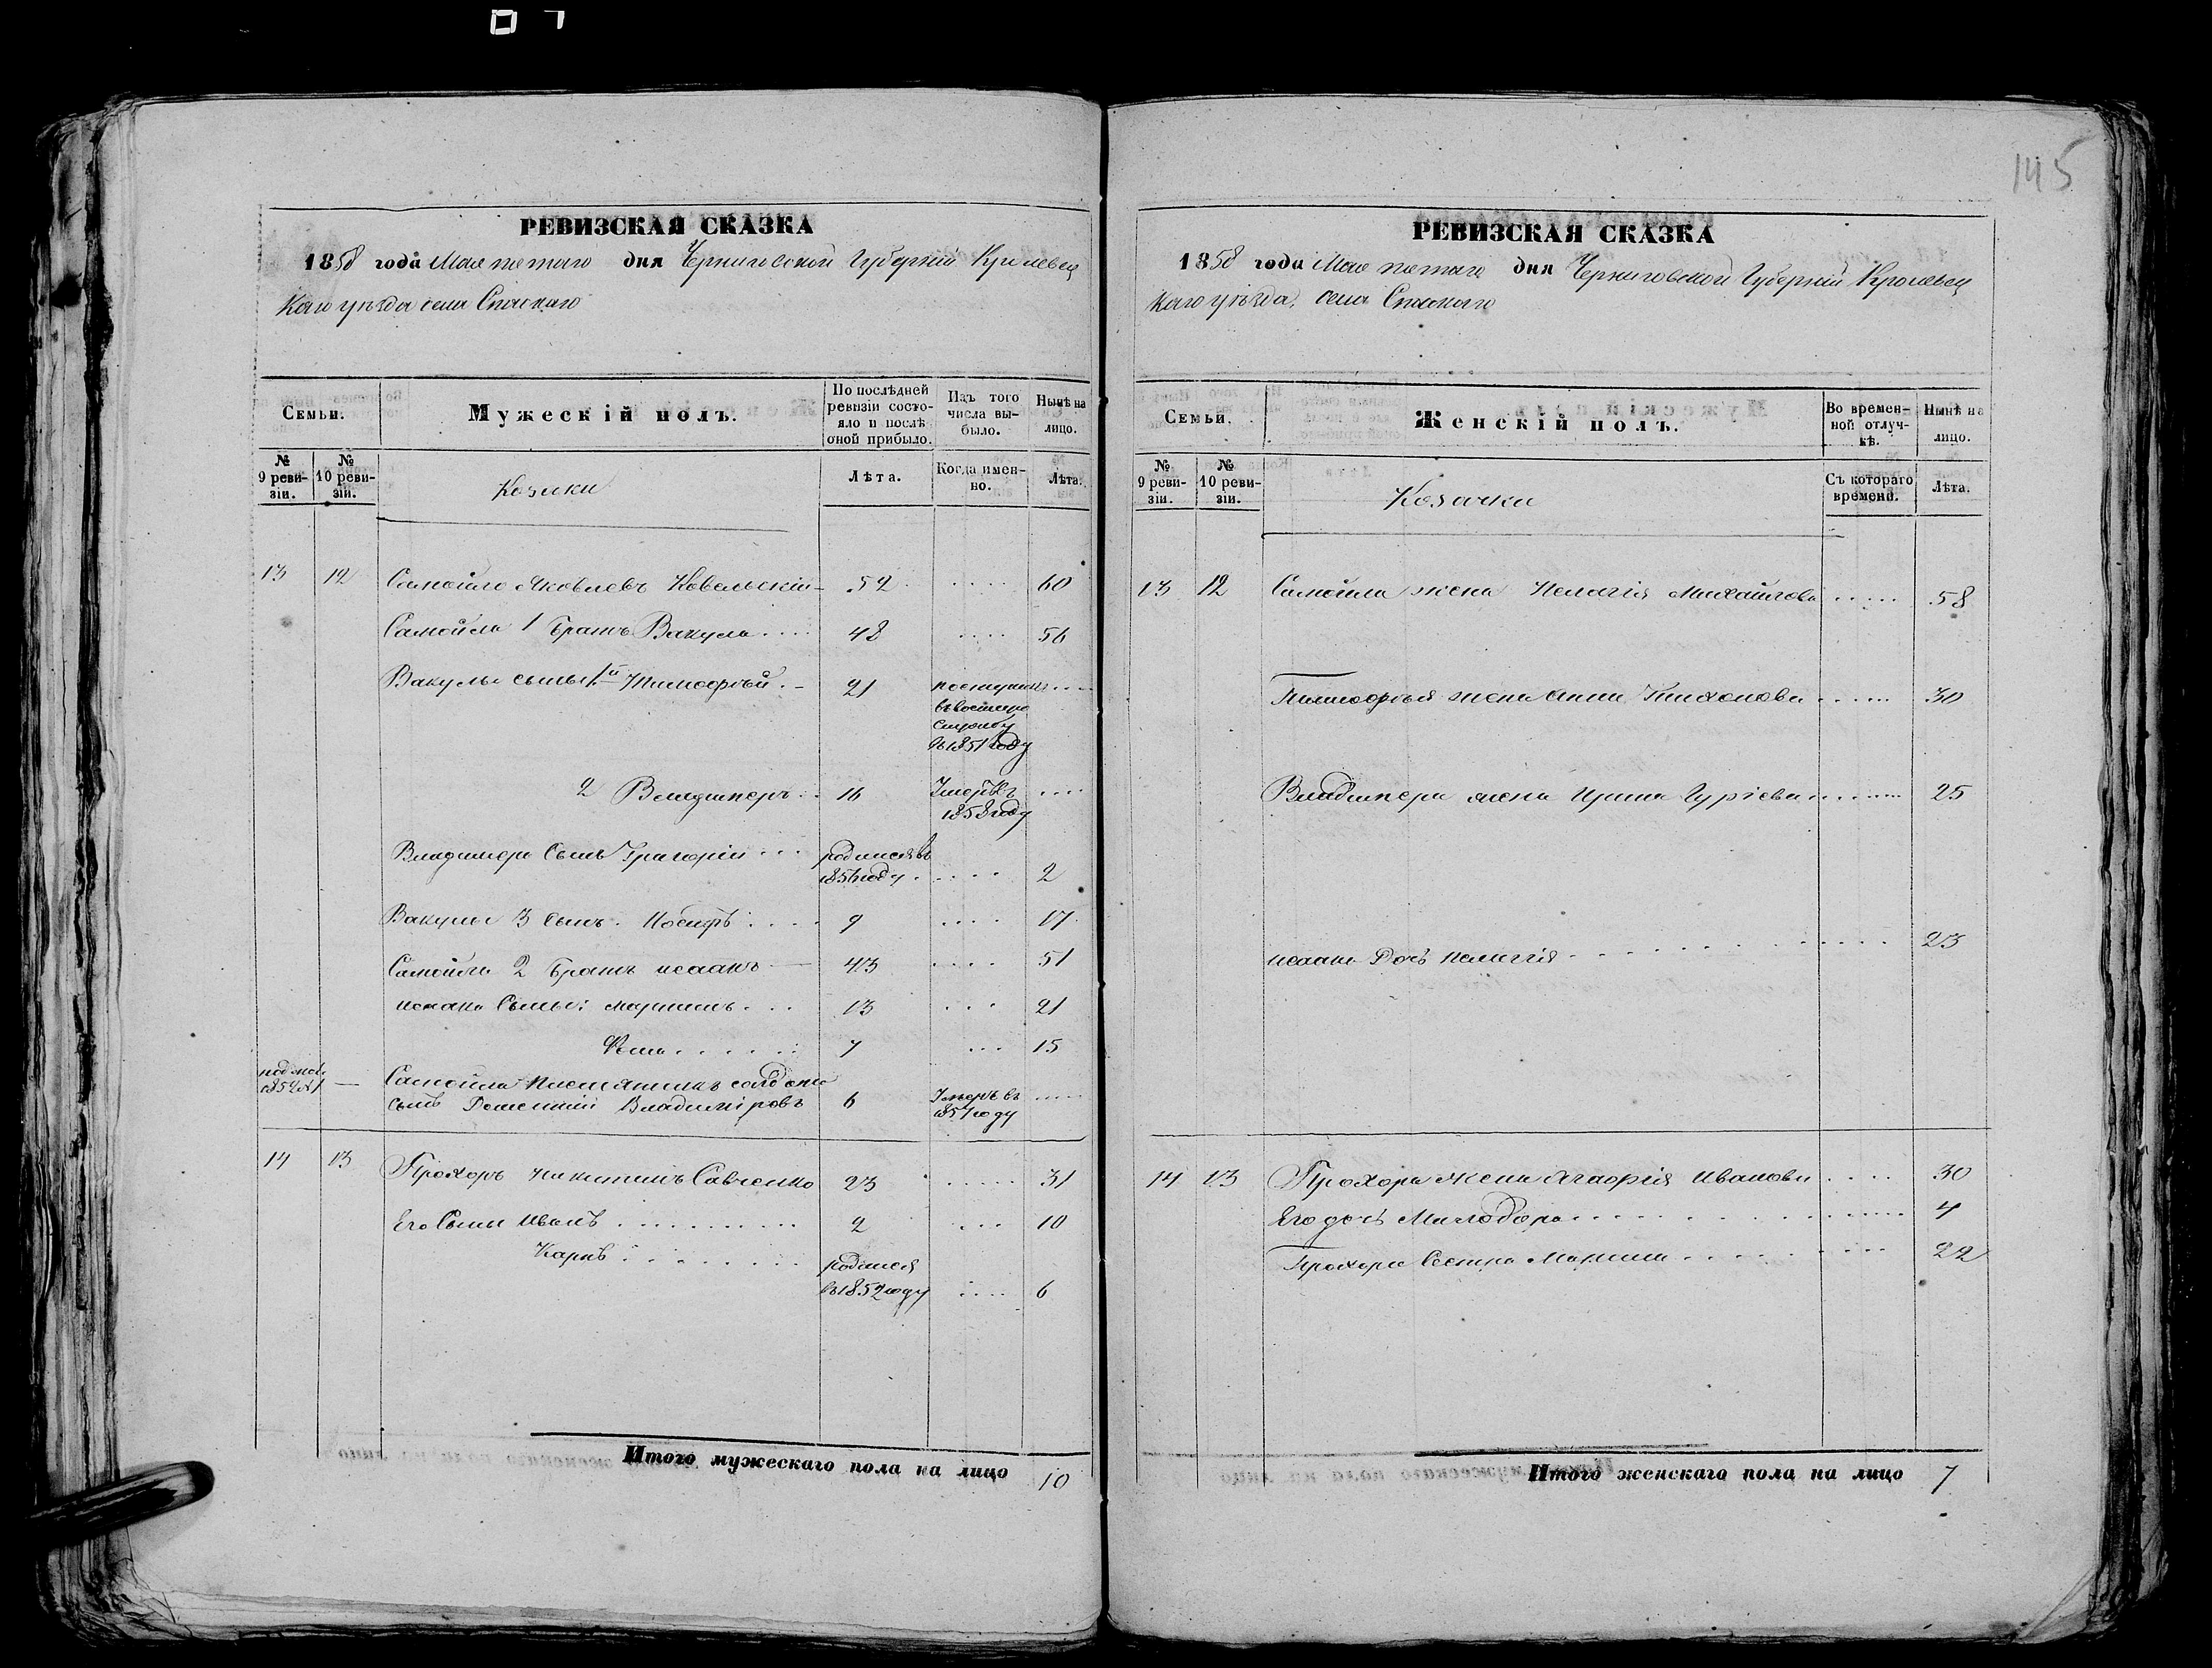 145
РЕВИЗСКАЯ СКАЗКА
1858 года Мая пятаго дня Черниговской Губерніи Кролевец
каго уѣзда села Спаскаго
Семьи. Мужескій полъ. По послѣдней ревизіи состояло и послѣ оной прибыло. Изъ того числа выбыло. Нынѣ на лицо.
№ 9 ревизіи. № 10 ревизіи. Козаки Лѣта. Когда именно. Лѣта.
13 12 Самойло Яковлевъ Ковальскій 52 60
Самойла 1 братъ Вакула 48 56
Вакулы сыны 1й Тимофѣй 21 поступилъ
въ военную
службу
въ 1851 году
2 Владимеръ 16 Умеръ въ
1858 году
Владимера сынъ Григорій родился въ
1856 году 2
Вакулы 3 сынъ Иосифъ 9 17
Самойла 2 братъ исаакъ 43 51
исаака сыны: мартинъ 13 21
Фома 7 15
1852 № 1 — Самойла племянникъ солдатс
сынъ Владиміровъ 6 Умеръ въ
1857 году
14 13 Прохоръ никитинъ Савченко 23 31
Его сыны Иванъ 2 10
Карпъ родился
въ 1852 году 6
Итого мужескаго пола на лицо 10
РЕВИЗСКАЯ СКАЗКА
1858 года Мая пятаго дня Черниговской Губерніи Кролевец
каго уѣзда, села Спаскаго
Семьи. Женскій полъ. Во временной отлучкѣ. Нынѣ на лицо.
№ 9 ревизіи. № 10 ревизіи. Козачки Съ котораго времени. Лѣта.
13 12 Самойла жена Пелагія Михайлова 58
Тимофѣя жена Анна Тихонова 30
Владимера жена Ирина Гуріева 25
исаака дочь пелагія 23
14 13 Прохора жена Агафія Иванова 30
Его дочь Милодора 4
Прохора сестра Марина 22
Итого женскаго пола на лицо 7